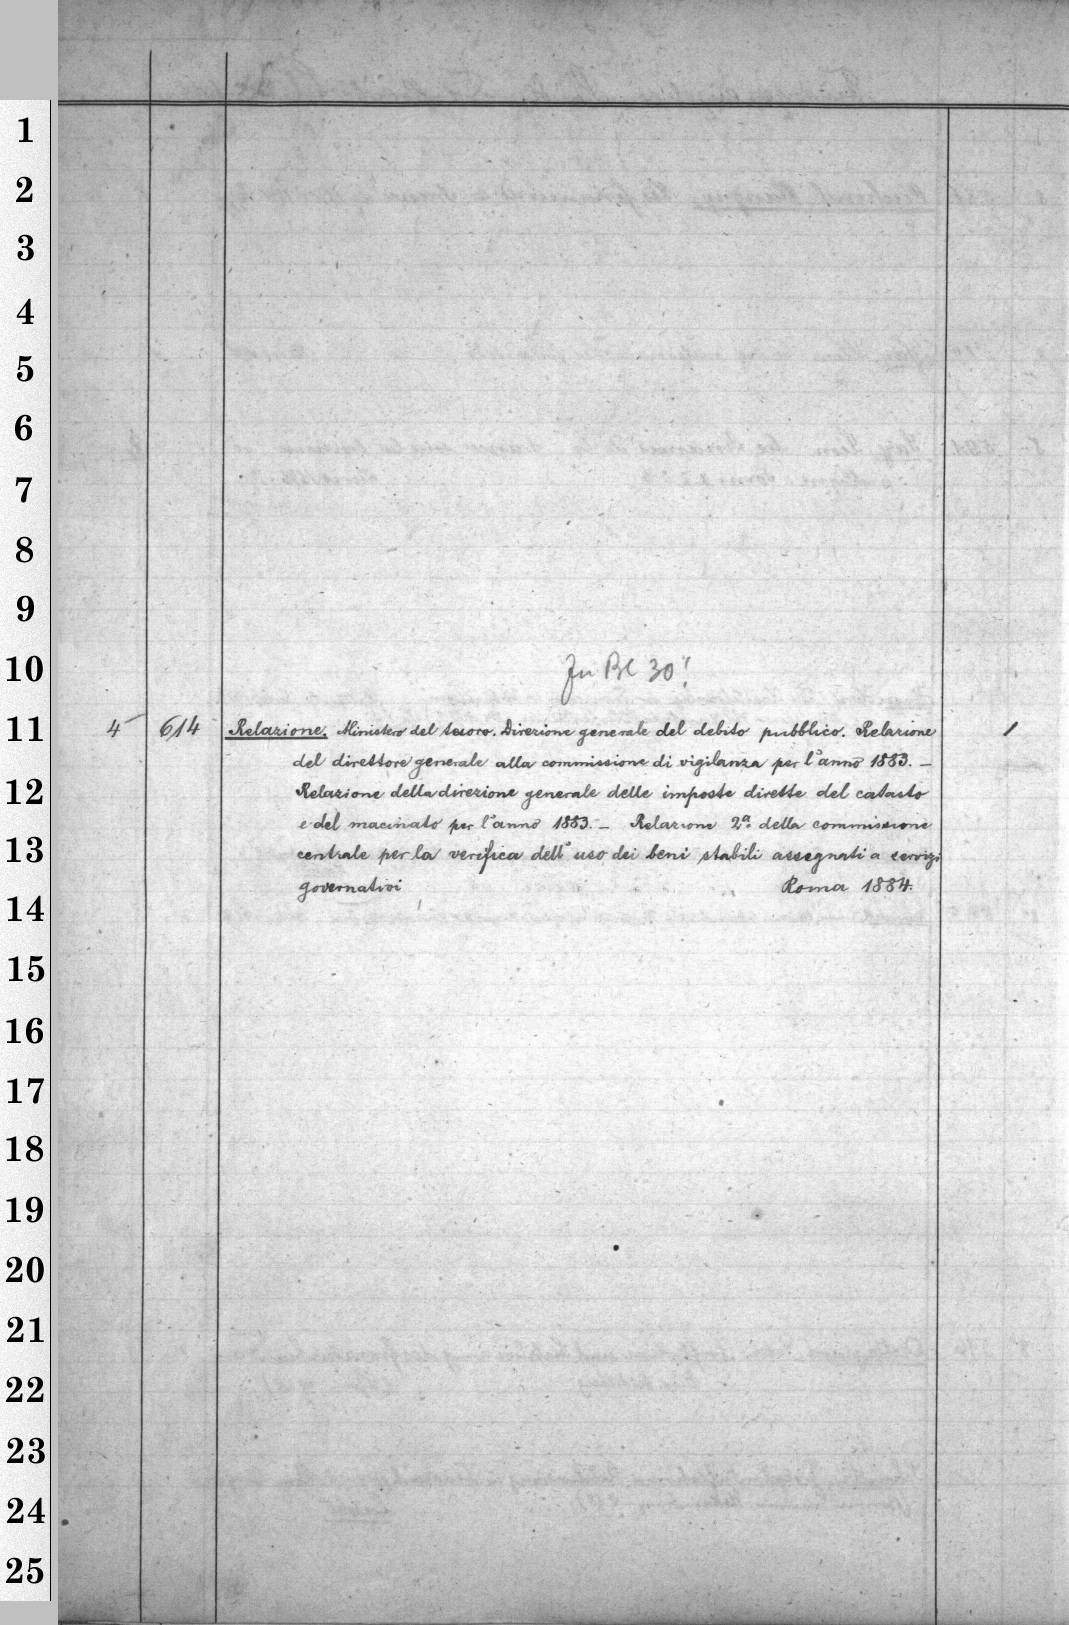 1
2
3
4
5
6
7
8
9
10
11
12
13
14
15
16
17
18
19
20
21
22
23
24
25
In BC 30!
4 614 Relazione. Ministero del tesoro. Direzione generale del debito pubblico. Relazione 1
del direttore generale alla commissione di vigilanza per l'anno 1883. —
Relazione della direzione generale delle imposte dirette del catasto
e del macinato per l'anno 1883. — Relazione 2a. della commissione
centrale per la verifica dell'uso dei beni stabili assegnati a servizi
governativi Roma 1884.